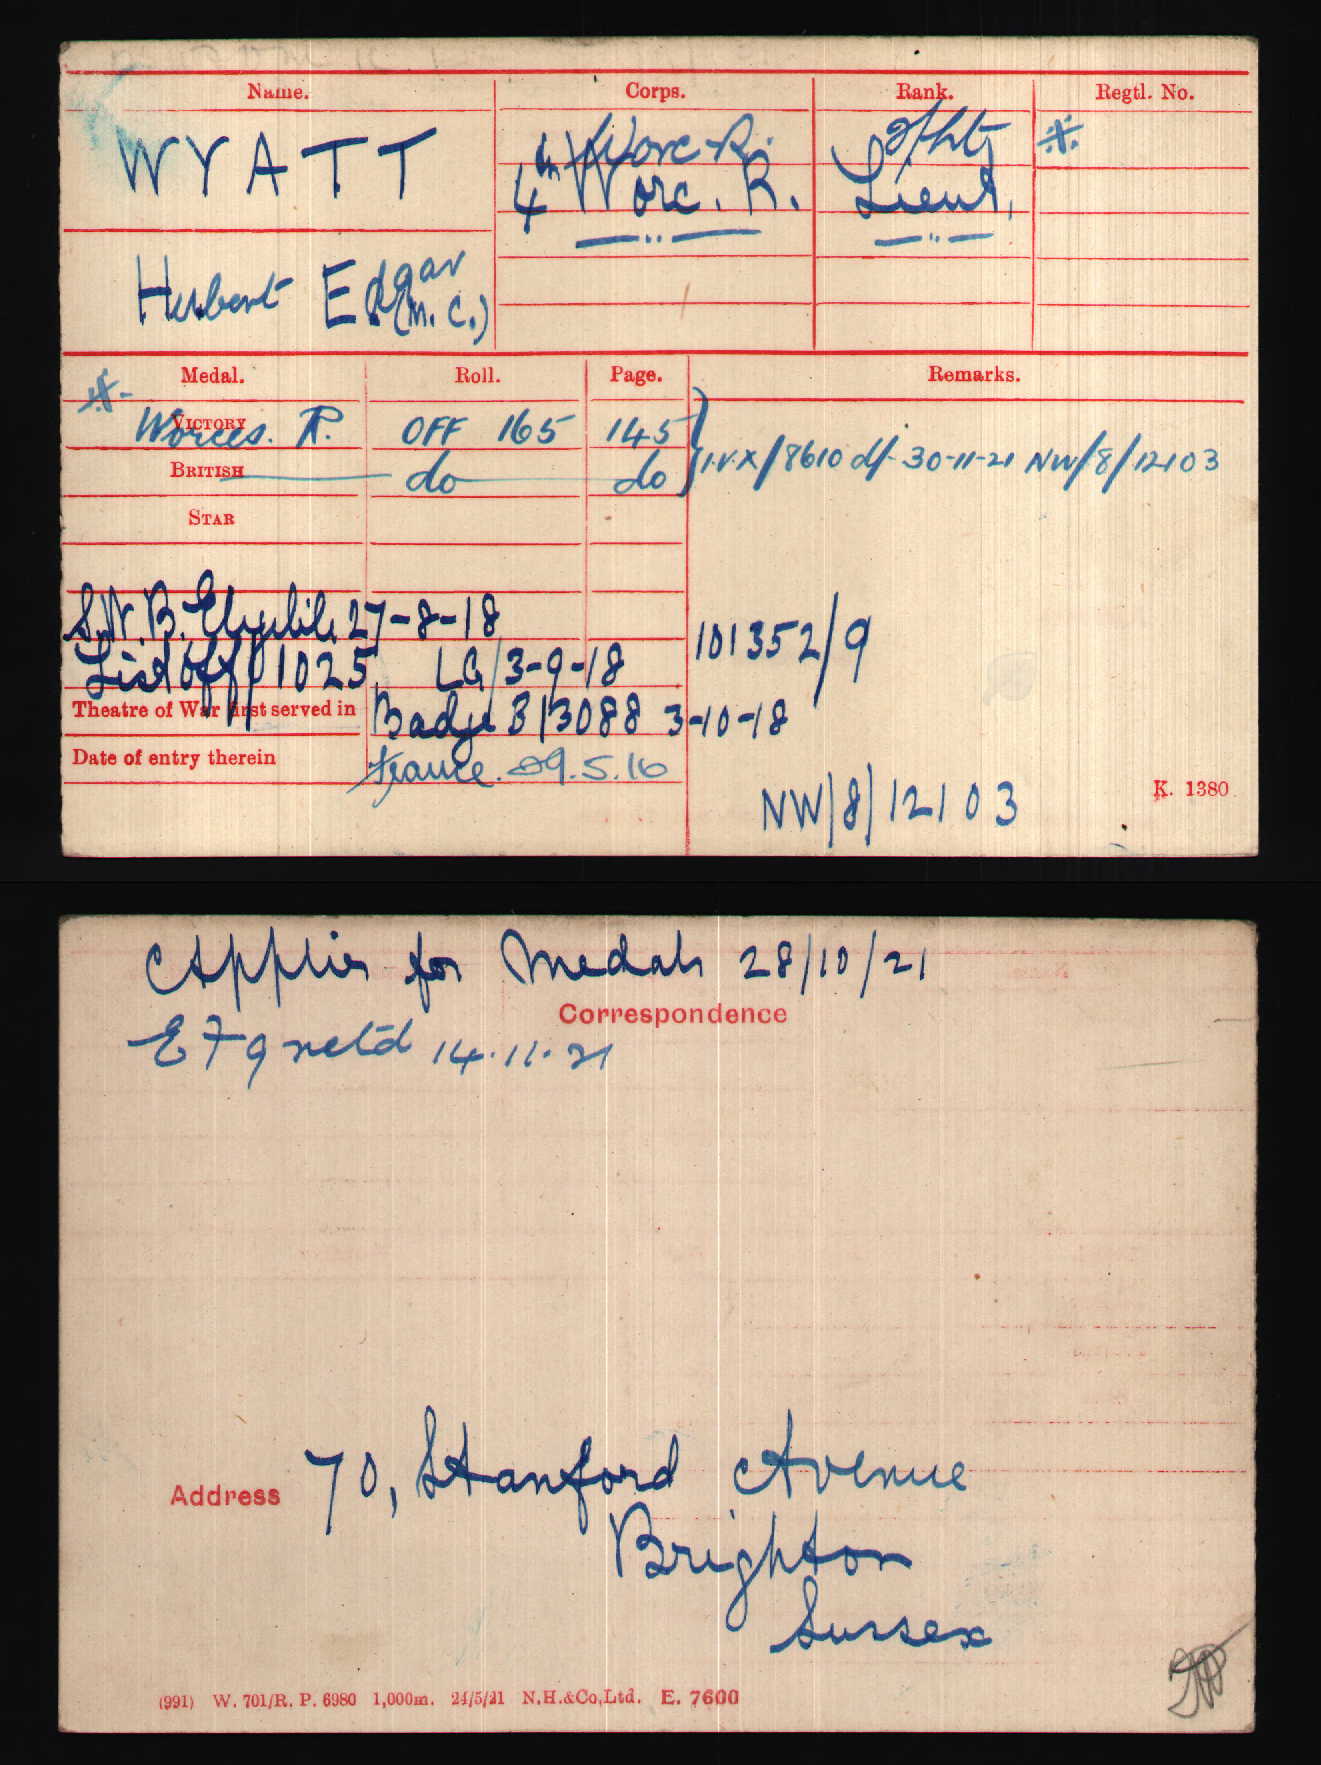 Name. Corps. Rank. Regtl. No.
WYATT Worc. R. Lieut ※
4th Worc. R. Lieut.
Herbert Edgar
(M. C.)
Medal. Roll. Page. Remarks.
※ Victory Worces. R. OFF 165 145 I.V.X/8610 d/- 30-11-21 NW/8/12103
British do do
Star
S.W.B. Eligibili. 27-8-18
List Off/1025 LG/3-9-18 101352/9
Theatre of War first served in Badge B/3088 3-10-18
Date of entry therein France. 29.5.16
NW/8/12103 K. 1380
Applies for Medals 28/10/21
Correspondence
EF9 retd 14.11.21
Address 70, Stanford Avenue
Brighton
Sussex
(991) W. 701/R. P. 6980 1,000m. 24/5/21 N.H.&Co,Ltd. E. 7600